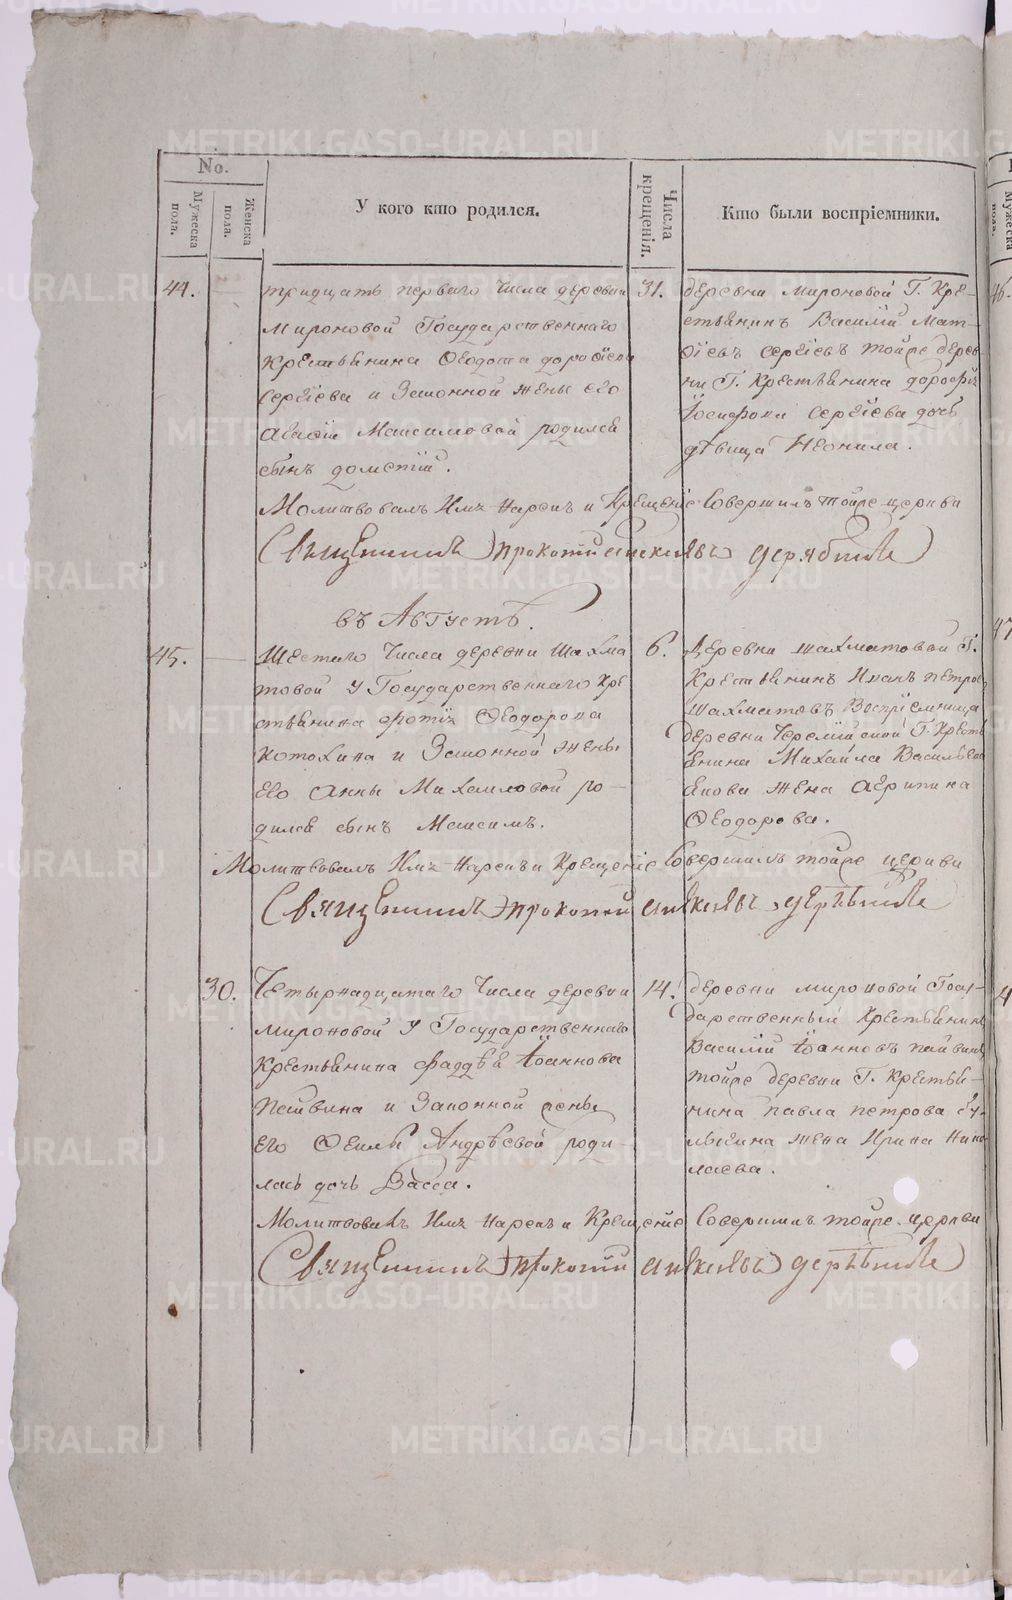 No.
Мужеска пола.
Женска пола.
У кого кто родился.
Числа крещенія.
Кто были воспріемники.
44.
тридцать перваго Числа деревни
Мироновой Государственнаго
крестьянина Ѳеодота дороѳіева
Сергіева и Законной жены его
Максимовой родился
сынъ дометій.
31.
деревни Мироновой Г. Кре-
стьянинъ Василій Мат-
ѳіевъ сергіевъ тойже дерев-
ни Г. Крестьянина
сергіева дочь
дѣвица Неонила.
Молитвовалъ Имъ Нарекъ и Крещеніе Совершилъ тойже церкви
Священникъ прокопій
въ Августѣ.
45.
Шестаго Числа деревни Шахма
товой у Государственнаго Кре
стьянина фотія Ѳеодорова
Котохина и Законной Жены
его Анны Михаиловой ро-
дился сынъ Максимъ.
6.
Деревни шахматовой Г.
Крестьянинъ Иванъ петровъ
шахматовъ Воспріемница
деревни Г. Кресть
янина Михаила
жена
Ѳеодорова.
Молитвовалъ Имъ Нарекъ и Крещеніе Совершилъ тойже церкви
Священникъ прокопій
30.
Четырнадцатаго Числа деревни
мироновой у Государственнаго
Крестьянина фаддѣя Іоаннова
пайвина и Законной жены
его Ѳеклы Андрѣевой роди-
лась дочь Васса.
14.
деревни мироновой Госу-
дарственный Крестьянинъ
Василій Іоанновъ пайвинъ
тойже деревни Г. Крестья-
нина павла петрова
жена Ирина Нико
лаева.
Молитвовалъ Имъ Нарекъ и Крещеніе Совершилъ тойже церкви
Священникъ прокопій
METRIKI.GASO-URAL.RU